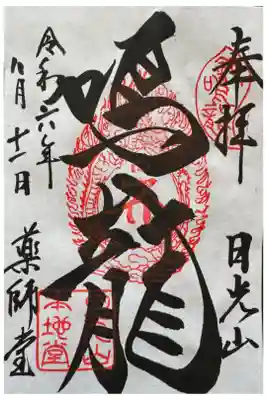 奉拝
日光山
鳴龍
令和六年
八月十一日
薬師堂
本地堂